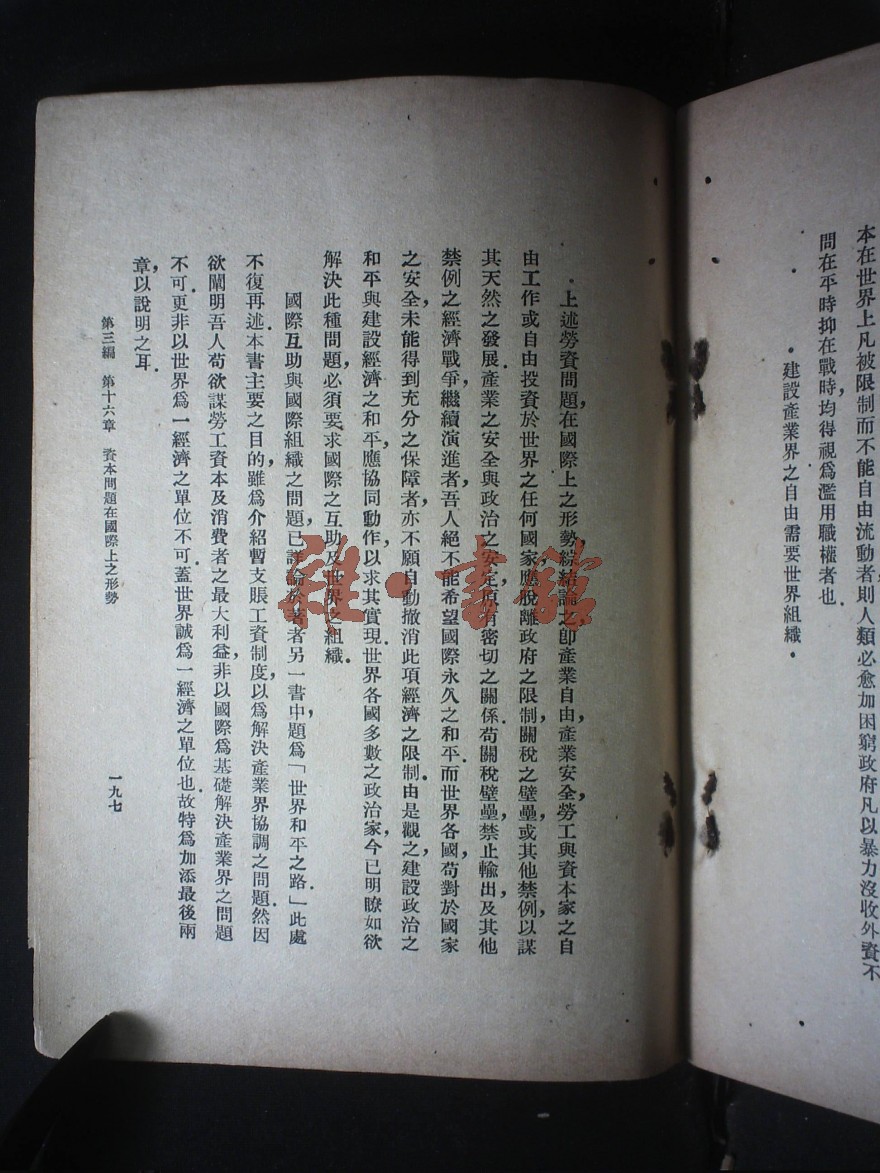 本在世界上凡被限制而不能自由流動者,則人類必愈加困窮政府凡以暴力沒收外資不
問在平時抑在戰時,均得視爲濫用職權者也.
•建設產業界之自由需要世界組織•
上述勞資問題,在國際上之形勢,綜結論之,卽產業自由,產業安全,勞工與資本家之自
由工作或自由投資於世界之任何國家,應脫離政府之限制,關稅之壁壘,或其他禁例,以謀
其天然之發展,產業之安全與政治之安定,原有密切之關係.苟關稅壁壘,禁止輸出,及其他
禁例之經濟戰爭,繼續演進者,吾人絕不能希望國際永久之和平,而世界各國,苟對於國家
之安全,未能得到充分之保障者,亦不願自動撤消此項經濟之限制.由是觀之,建設政治之
和平與建設經濟之和平,應協同動作,以求其實現.世界各國多數之政治家,今已明瞭如欲
解決此種問題,必須要求國際之互助及世界之組織.
國際互助與國際組織之問題,已詳論於著者另一書中,題爲「世界和平之路.」此處
不復再述.本書主要之目的,雖爲介紹暫支賬工資制度,以爲解決產業界協調之問題.然因
欲闡明吾人苟欲謀勞工資本及消費者之最大利益,非以國際爲基礎,解決產業界之問題
不可.更非以世界爲一經濟之單位不可.蓋世界誠爲一經濟之單位也.故特爲加添最後兩
章,以說明之耳.
第三編 第十六章 資本問題在國際上之形勢
一九七
雜•書館